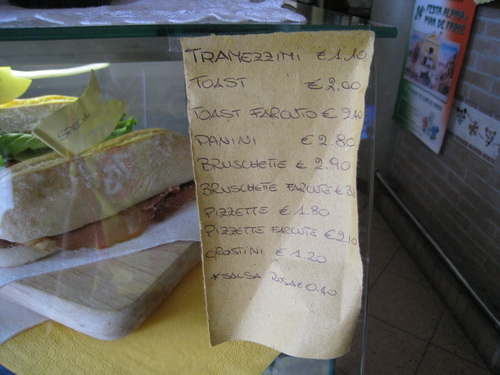 TRAMEZZINI €1.10
TOAST €2.00
TOAST FARCITO €2.40
PANINI €2.80
BRUSCHETTE €2.90
BRUSCHETTE FARCITE €3
PIZZETTE €1.80
PIZZETTE FARCITE €2.10
CROSTINI €1.20
*SALSA ROSA €0.40
FESTA